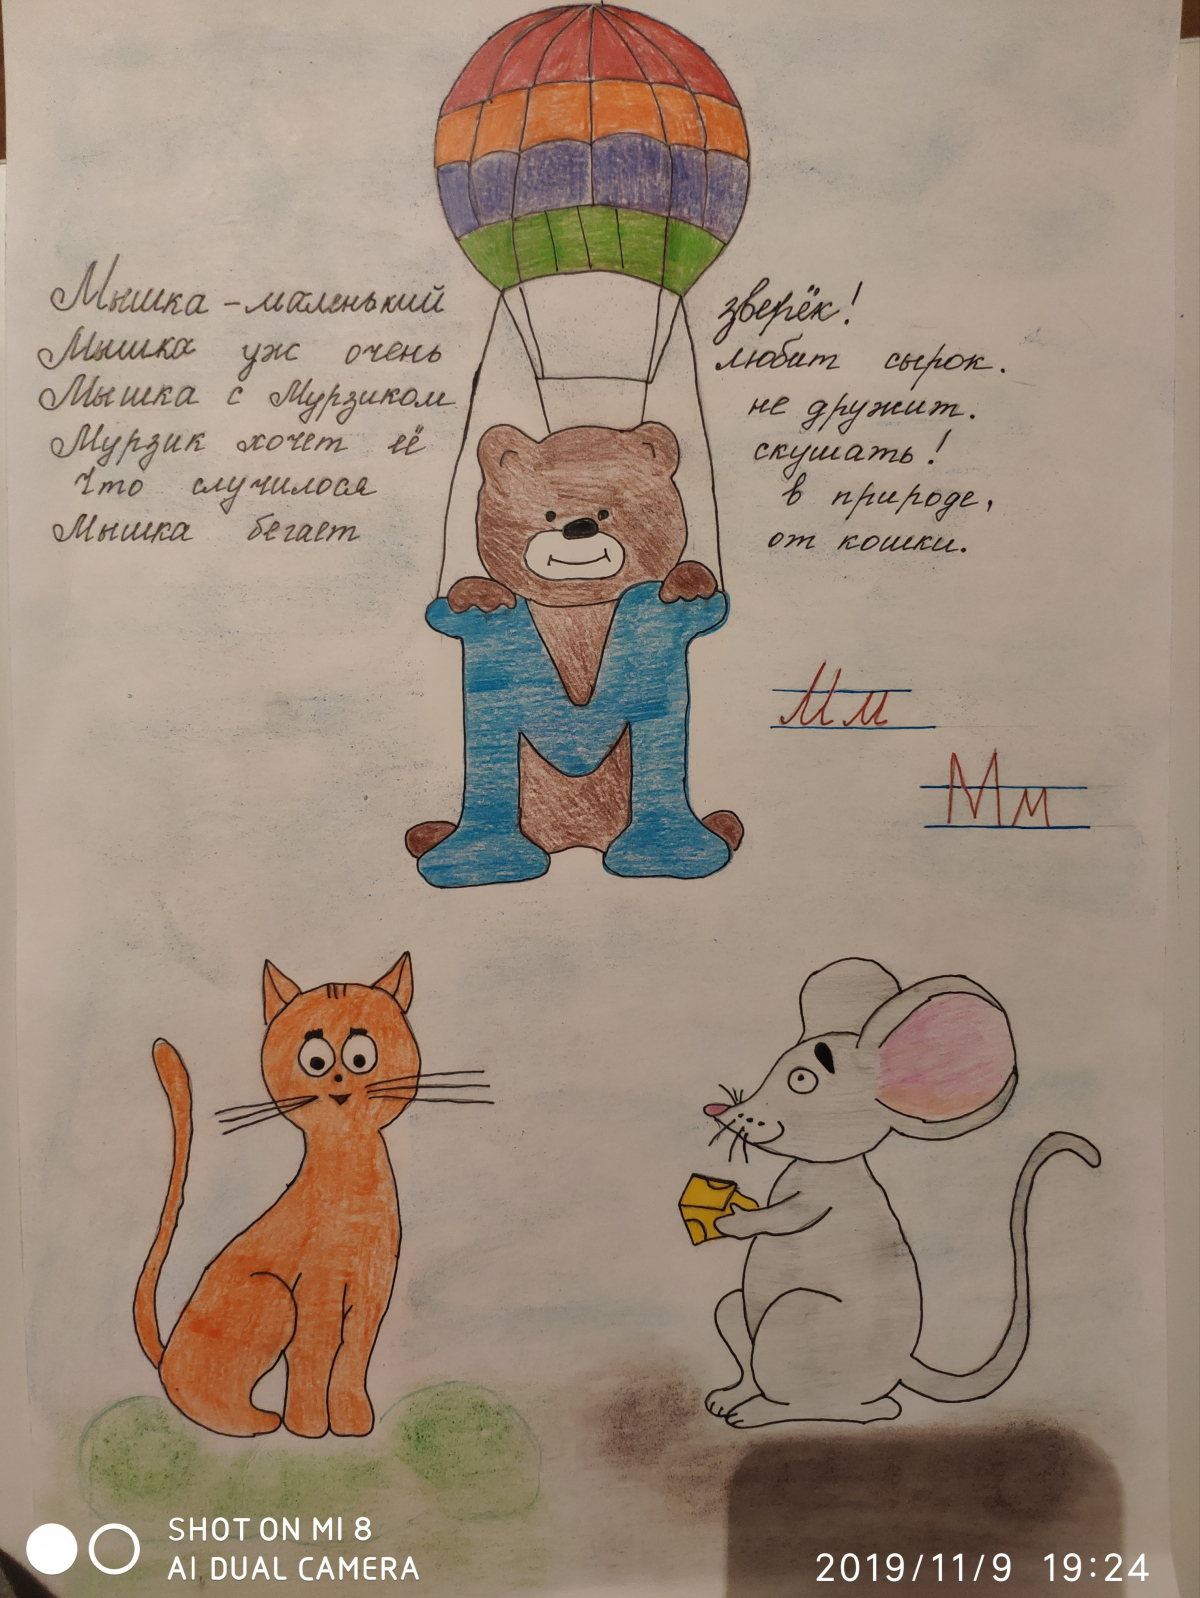 Мышка – маленький зверёк!
Мышка уж очень любит сырок.
Мышка с Мурзиком не дружит.
Мурзик хочет её скушать!
Что случилося в природе,
Мышка бегает от кошки.
М м
М м
SHOT ON MI 8
AI DUAL CAMERA
2019/11/9 19:24